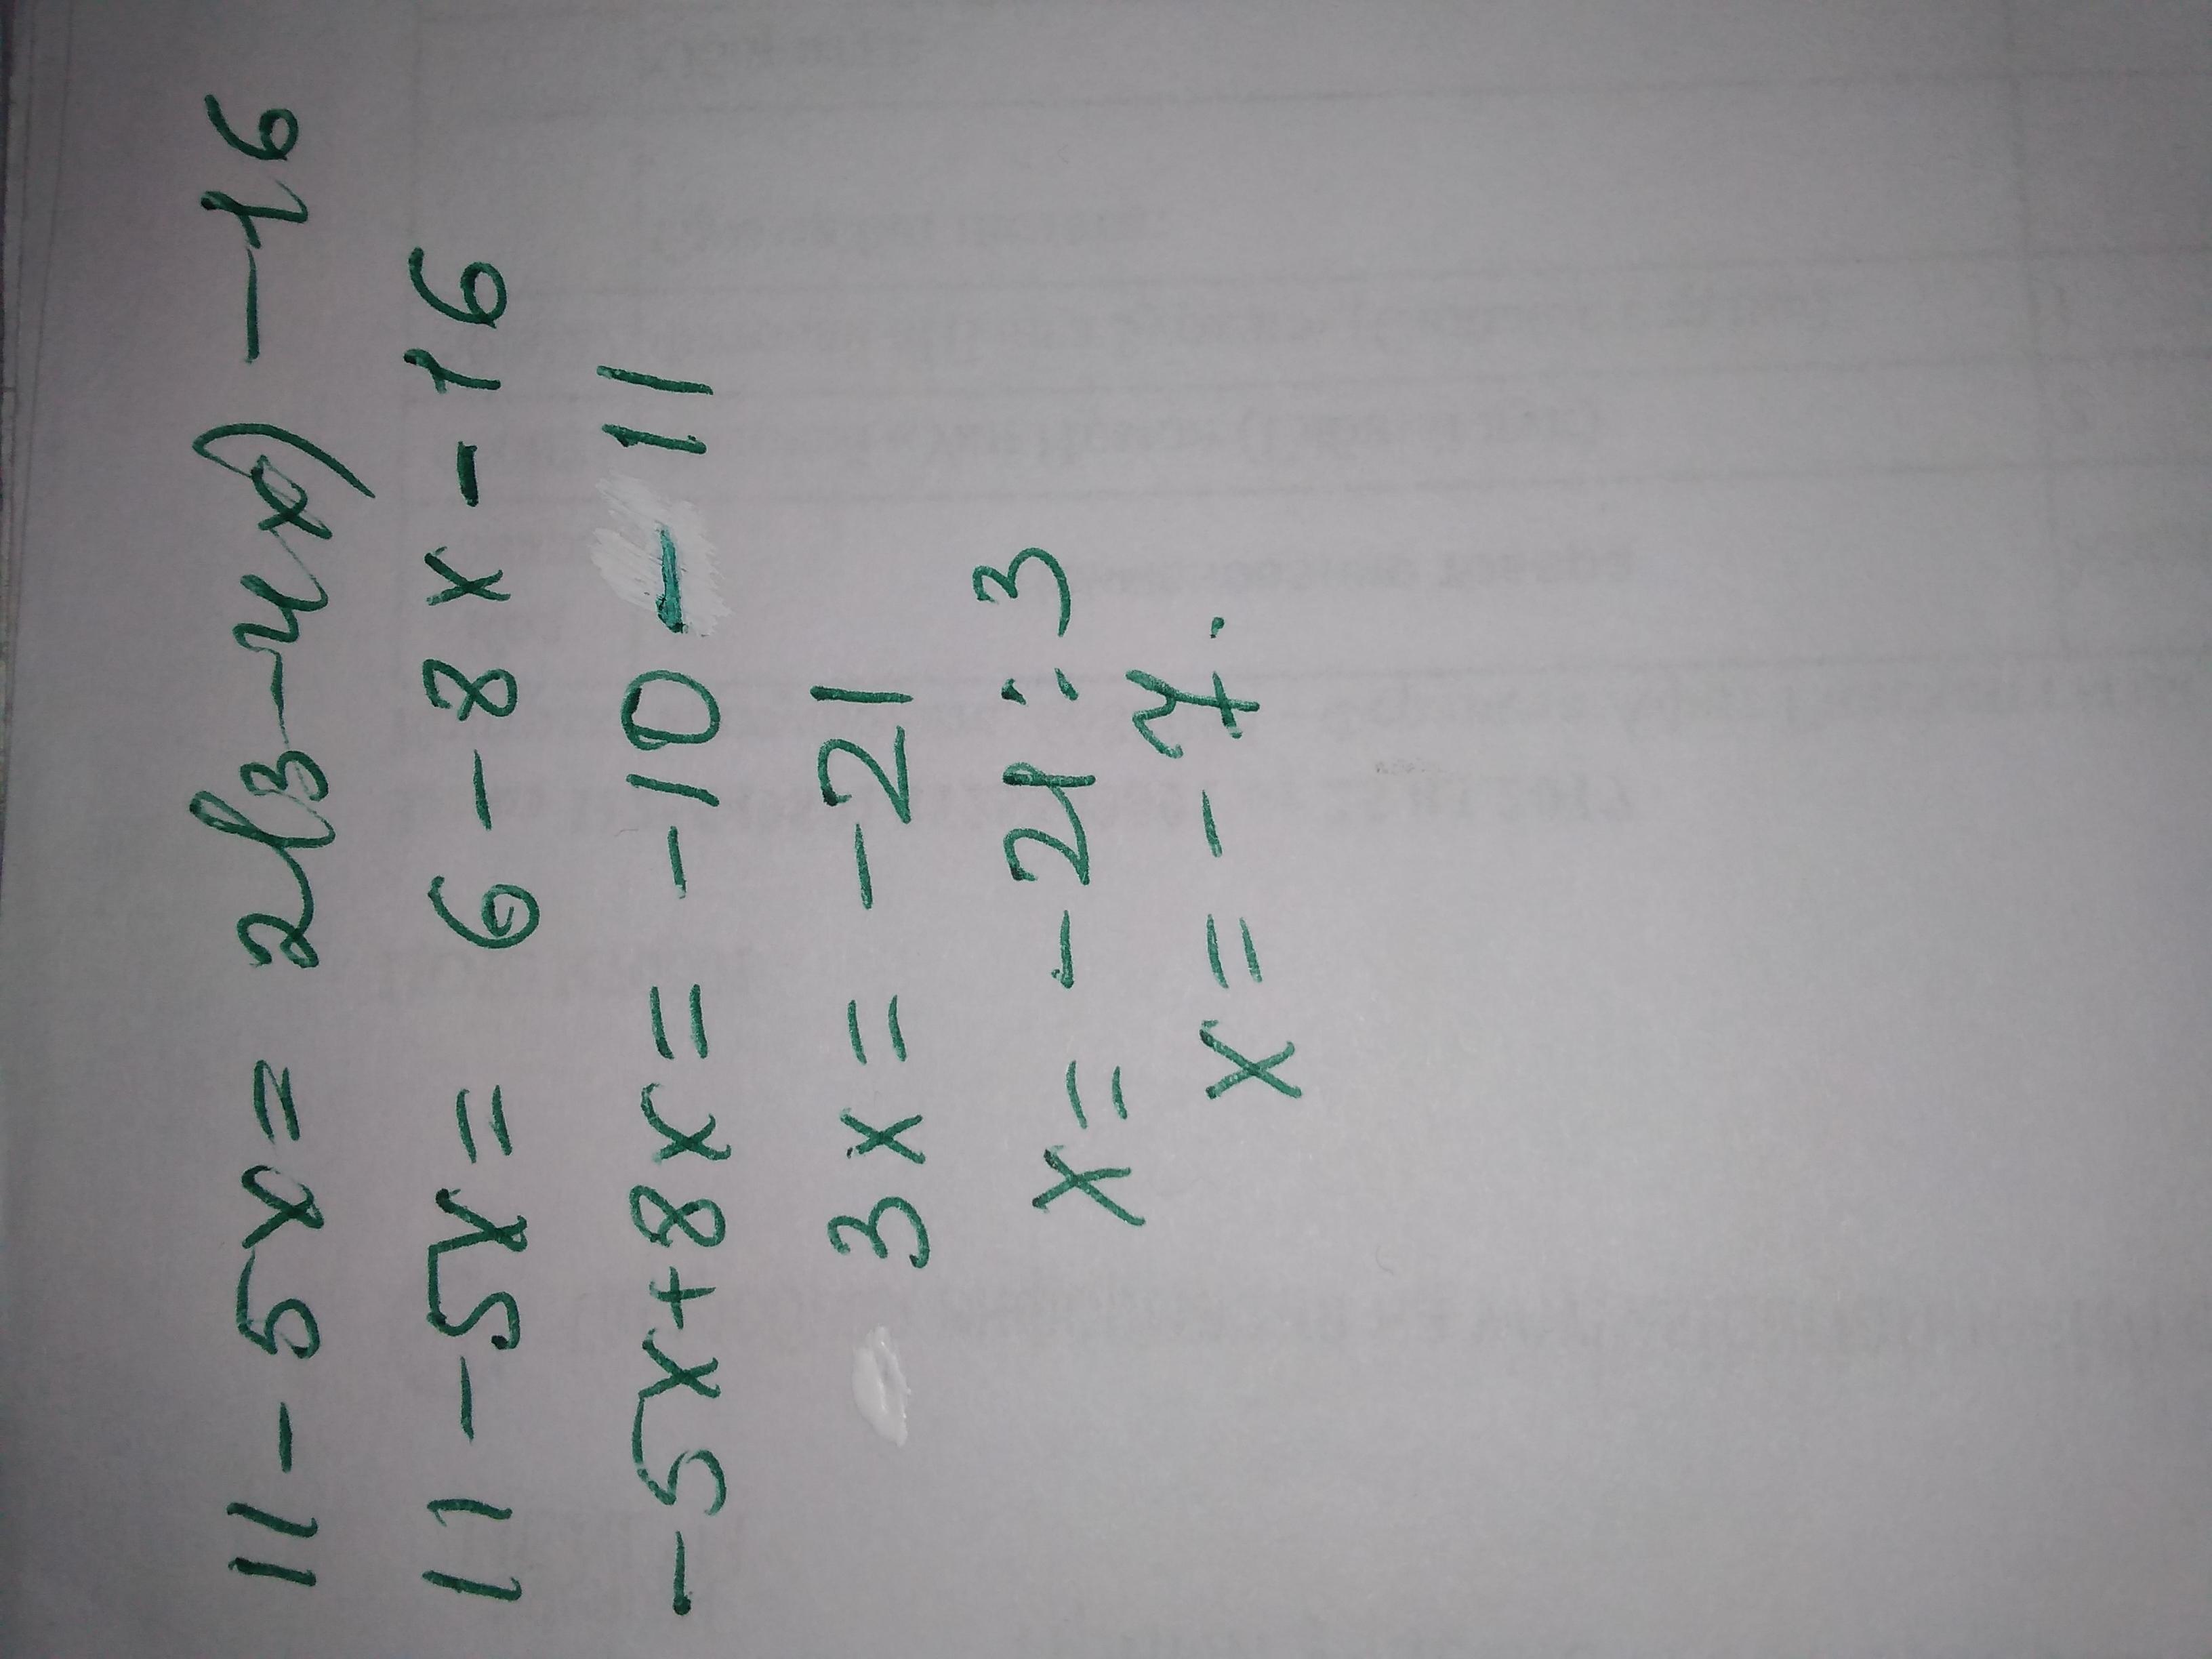 11 - 5x = 2(3 - 4x) - 16
11 - 5x = 6 - 8x - 16
-5x + 8x = -10 - 11
3x = -21
x = -21 : 3
x = -7.